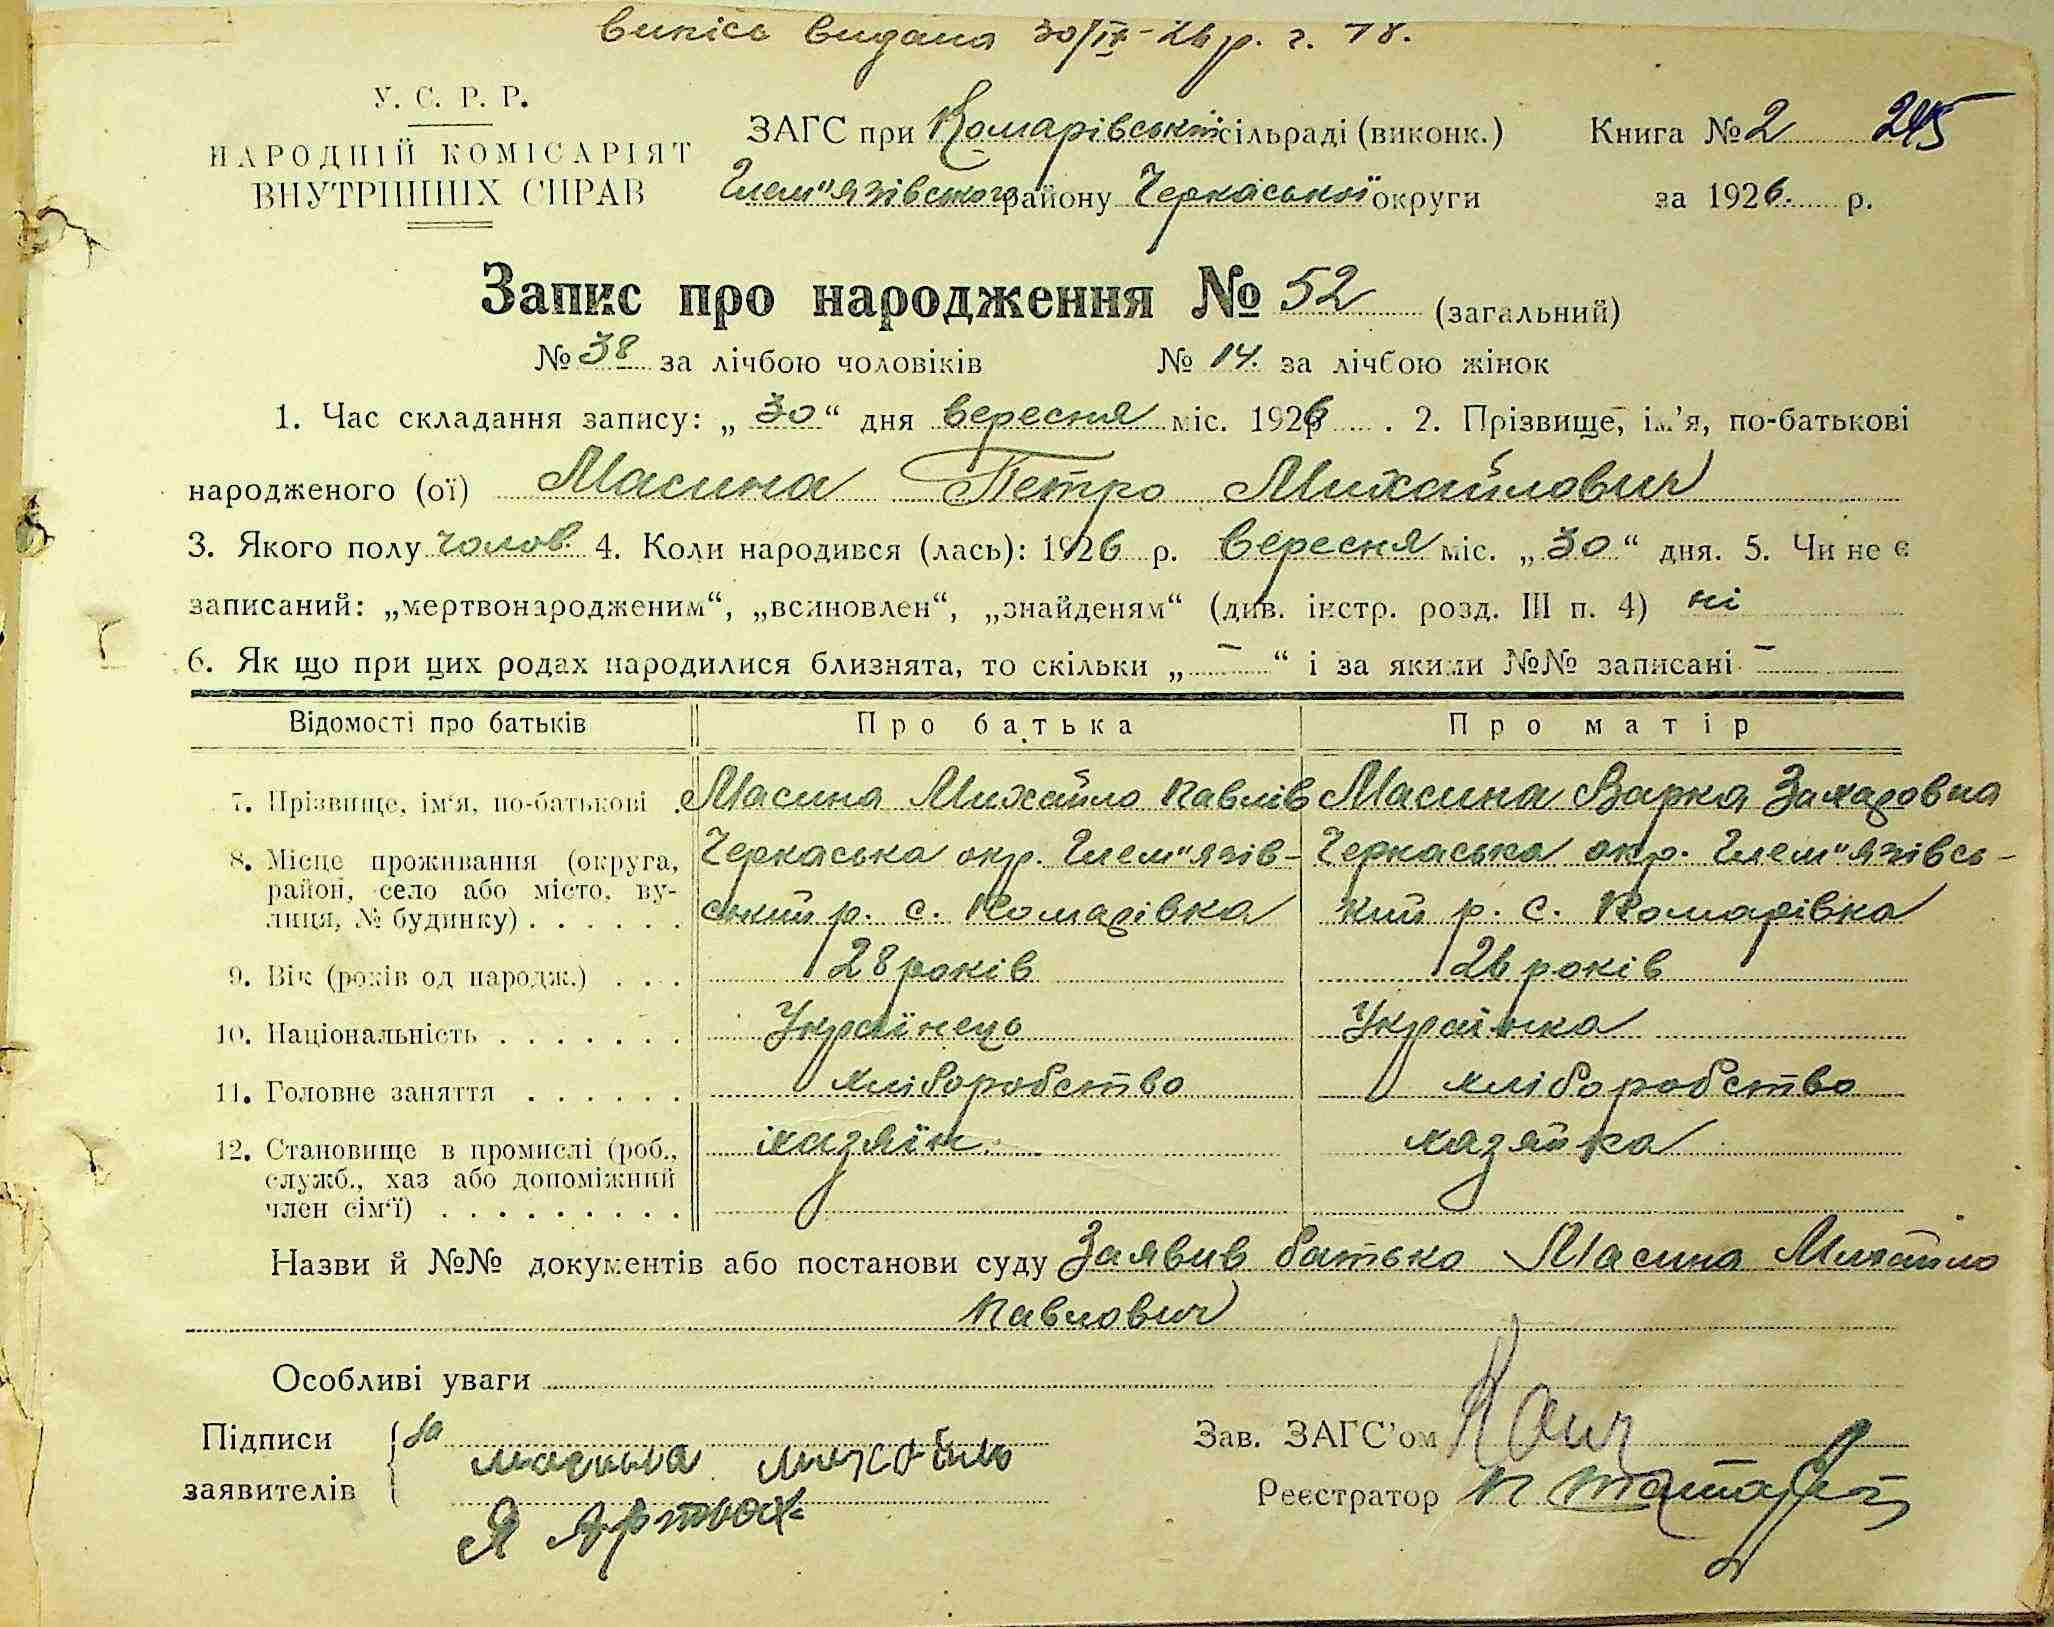 Випісь видана 30/IX-26 р. г. 78.
У. С. Р. Р.
НАРОДНІЙ КОМІСАРІЯТ
ВНУТРІШНІХ СПРАВ
ЗАГС при Комарівській сільраді (виконк.)
Гельм"язівського району Черкаської округи
Книга № 2 245
за 1926. р.
Запис про народження № 52 (загальний)
№ 38 за лічбою чоловіків № 14. за лічбою жінок
1. Час складання запису: „ 30 “ дня вересня міс. 1926 . 2. Прізвище, ім'я, по-батькові
народженого (ої) Масина Петро Михайлович
3. Якого полу чолов. 4. Коли народився (лась): 1926 р. вересня міс. „ 30 “ дня. 5. Чи не є
записаний: „мертвонародженим“, „всиновлен“, „знайденям“ (див. інстр. розд. III п. 4) ні
6. Як що при цих родах народилися близнята, то скільки „ – “ і за якими №№ записані –
Відомості про батьків Про батька Про матір
7. Прізвище, ім'я, по-батькові . Масина Михайло Павлів Масина Варка Захаровна
8. Місце проживання (округа, Черкаська окр. Гелем"язів- Черкаська окр. Гелем"язівсь-
район, село або місто, ву- ський р. с. Комарівка кий р. с. Комарівка
лиця, № будинку) . . . . . .
9. Вік (років од народж.) . . . 28 років 26 років
10. Національність . . . . . . . Українець Українка
11. Головне заняття . . . . . . хліборобство хліборобство
12. Становище в промислі (роб., хазяїн. хазяйка
служб., хаз або допоміжний
член сім'ї) . . . . . . . . .
Назви й №№ документів або постанови суду Заявив батько Масина Михайло
Павлович
Особливі уваги
Підписи За Зав. ЗАГС'ом
заявителів масина михайло Реєстратор
Я Артюх